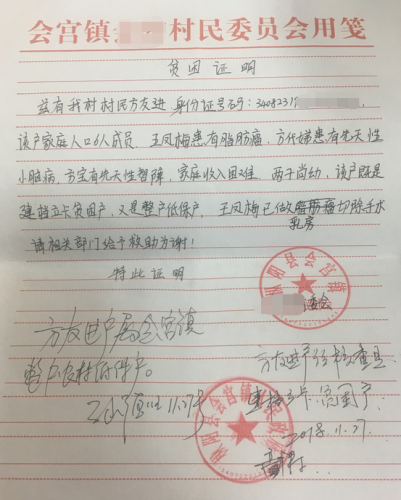 会宫镇 村民委员会用笺
贫困证明
兹有我村村民方友进 身份证号码：3408231
该户家庭人口6人成员，王凤梅患有脂肪瘤，方代娣患有先天性
小脑病，方宝有先天性智障，家庭收入困难 两子尚幼，该户既是
建档立卡贫困户，又是整户低保户，王凤梅已做脂肪瘤切除手术
乳房
请相关部门给予救助方谢！
特此证明
枞阳县会宫镇
委会
方友进户为会宫镇
整户农村低保户。
11.27
方友进户经核查是
建档立卡贫困户
2018.11.27.
会宫镇